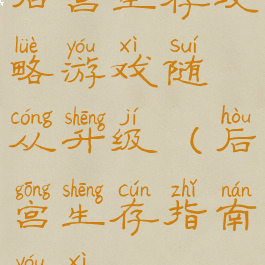 后宫生存攻
lüè yóu xì suí
略游戏随
cóng shēng jí hòu
从升级（后
gōng shēng cún zhǐ nán
宫生存指南
yóu xì